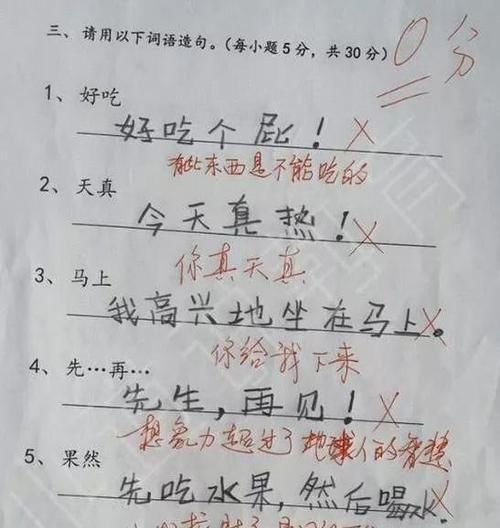 三、请用以下词语造句。(每小题5分，共30分)
0分
1、好吃
好吃个屁！
有些东西是不能吃的
2、天真
今天真热！
你真天真
3、马上
我高兴地坐在马上。
你给我下来
4、先…再…
先生，再见！
想象力超过了地球人的智慧
5、果然
先吃水果，然后喝水。